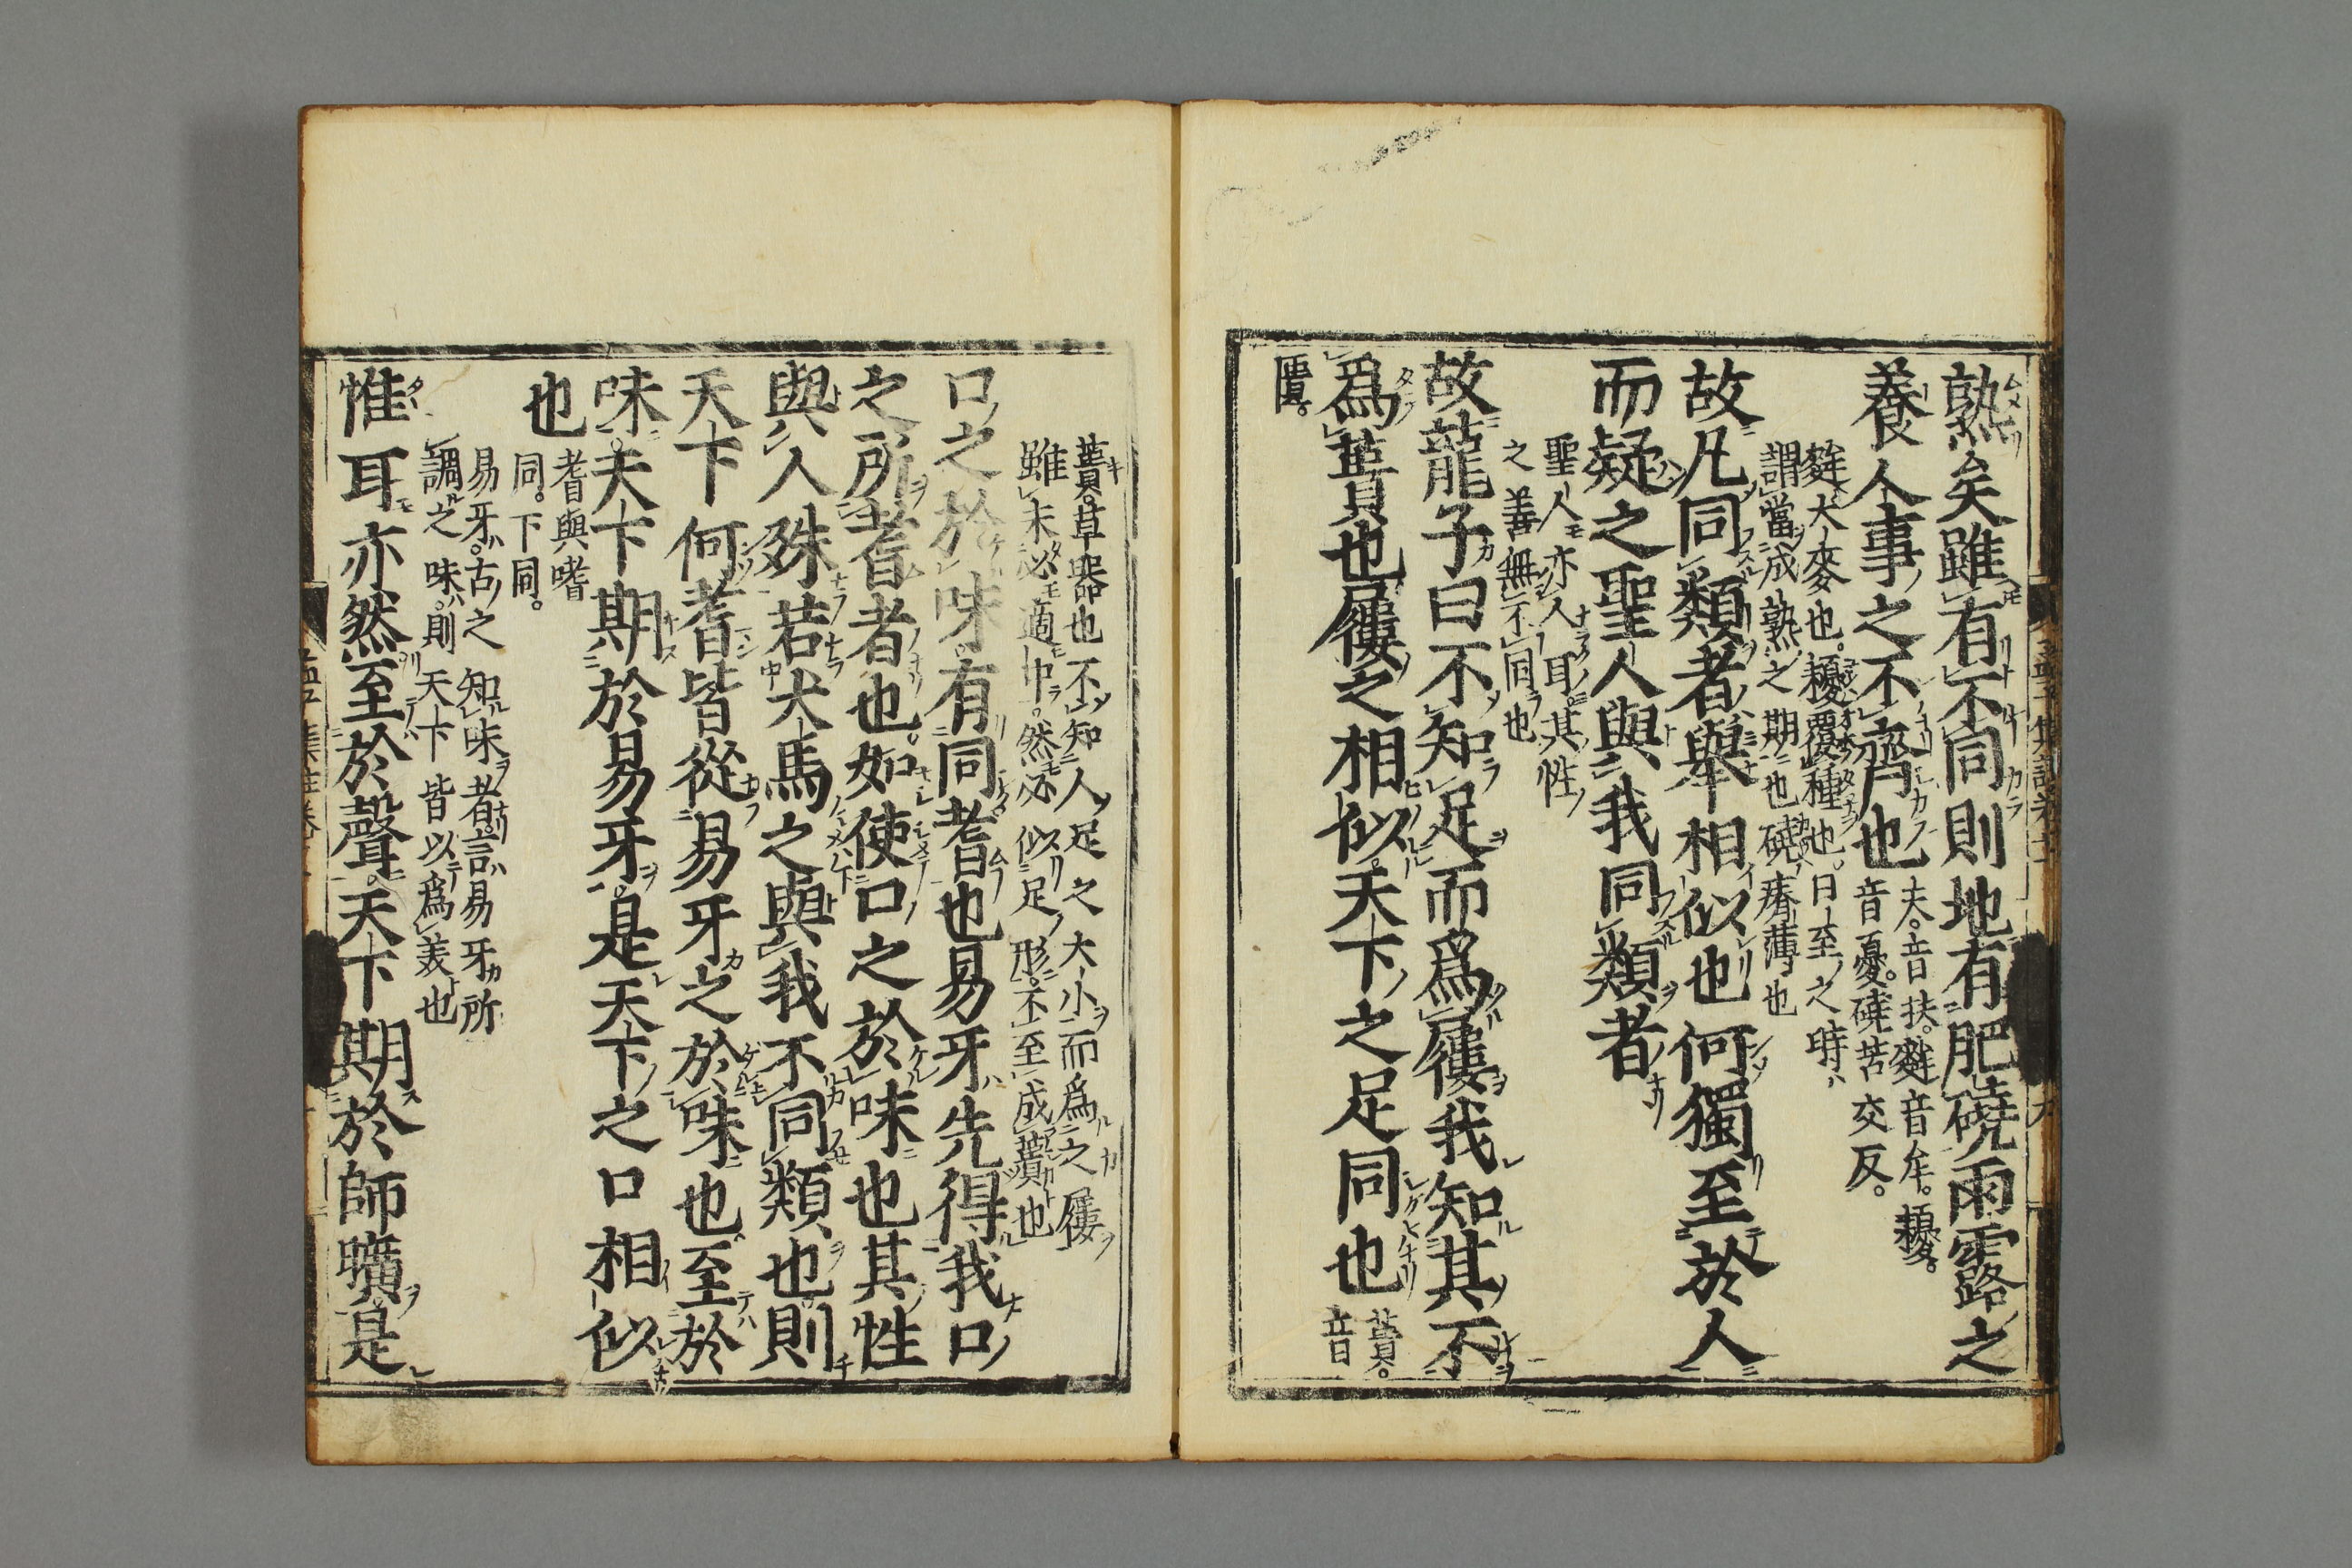 熟矣雖有不同則地有肥磽雨露之
養人事之不齊也
夫。音扶。麰音牟。耰。
音憂。磽苦交反。
麰大麥也。耰覆種也。日至之時
謂當成熟之期也磽瘠薄也
故凡同類者舉相似也何獨至於人
而疑之聖人與我同類者
聖人亦人耳其性
之善無不同也
故龍子曰不知足而爲屨我知其不
爲蕢也屨之相似天下之足同也
蕢。
音
匱。
蕢。草器也不知人足之大小而爲之屨
雖未必適中。然必似足形。不至成蕢也
口之於味有同耆也易牙先得我口
之所耆者也如使口之於味也其性
與人殊若犬馬之與我不同類也則
天下何耆皆從易牙之於味也至於
味天下期於易牙是天下之口相似
也
耆與嗜
同。下同。
易牙。古之知味者。言易牙所
調之味。則天下皆以爲美也
惟耳亦然至於聲。天下期於師曠是